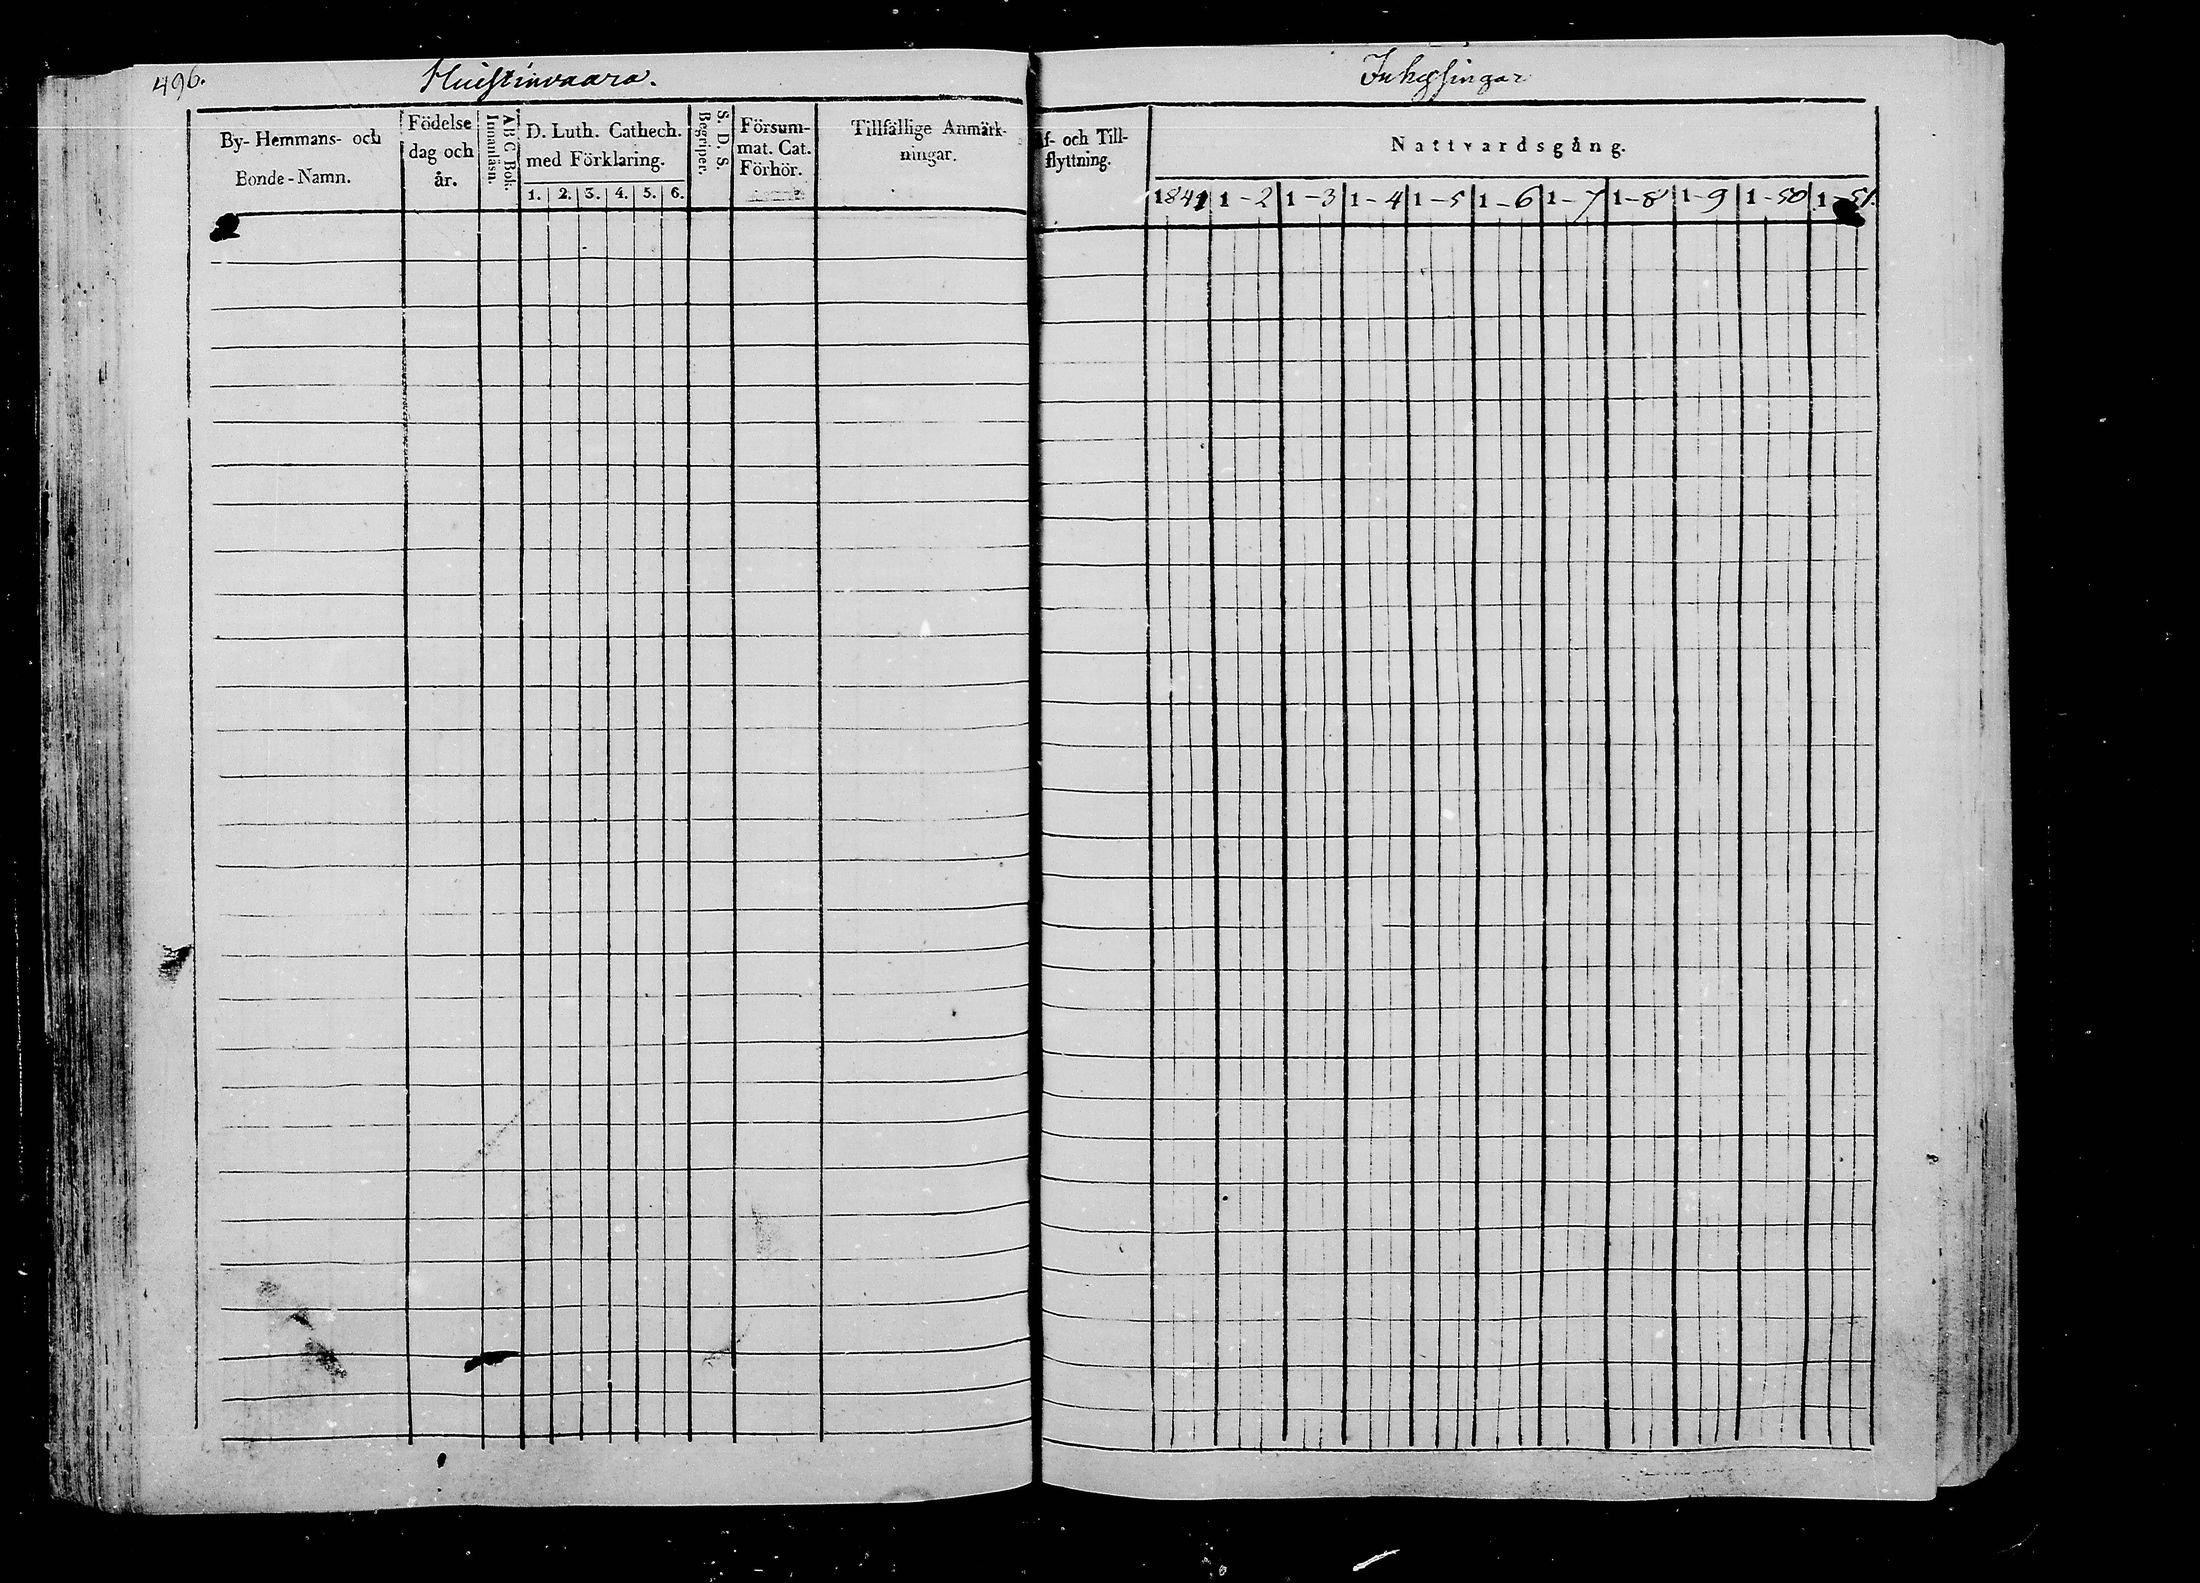 496.
Huistinvaara.
By- Hemmans- och
Bonde-Namn.
Födelse
dag och
år.
A B C Bok.
Innanläsn.
D. Luth. Cathech.
med Förklaring.
1. 2. 3. 4. 5. 6.
S. D. S.
Begriper.
Försum-
mat. Cat.
Förhör.
Tillfällige Anmärk-
ningar.
Inhysingar
f- och Till-
flyttning.
Nattvardsgång.
1841 1-2 1-3 1-4 1-5 1-6 1-7 1-8 1-9 1-50 1-51.